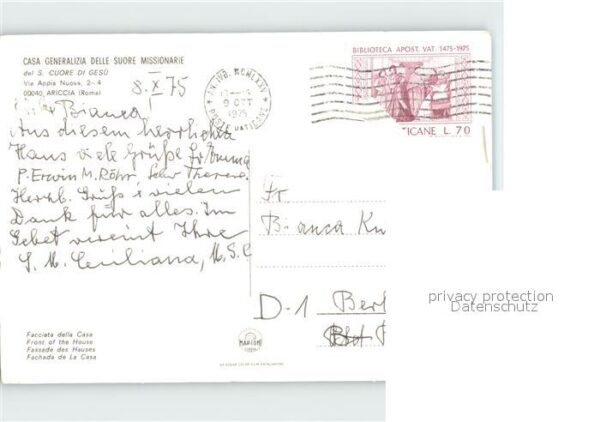 CASA GENERALIZIA DELLE SUORE MISSIONARIE
del S. CUORE DI GESÙ
Via Appia Nuova, 2-4
00040, ARICCIA (Roma)
8. X 75
Bianca!
Aus diesem herrlichen
Haus viele Grüße
P. Erwin M. Röhr
Herzl. Grüß i vielen
Dank für alles. Im
Gebet vereint Ihre
S. M. Ceciliana, M.S.C
Facciata della Casa
Front of the House
Fassade des Hauses
Fachada de La Casa
BIBLIOTECA APOST. VAT. 1475-1975
TICANE L. 70
AN. IVB. MCMLXXV
9 OTT
1975
POSTE VATICANE
Fr
Bianca
D-1 Berl
privacy protection
Datenschutz